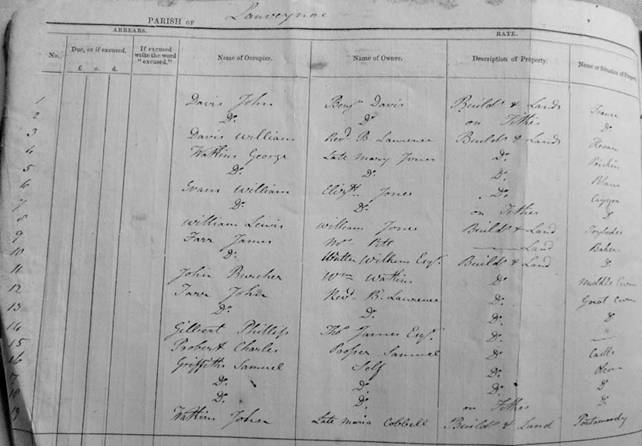 PARISH OF
ARREARS.
RATE.
No. Due, or if excused. If excused write the word "excused." Name of Occupier. Name of Owner. Description of Property. Name or Situation of
£ s. d.
1 Davis John Benjn Davis Buildgs & Lands
2 Do Do on Tithes Do
3 Davis William Revd B Lawrence Buildgs & Lands
4 Watkins George Late Mary Jones Do
5 Do Do Do
6 Evans William Elizth Jones Do
7 Do Do on Tithes Do
8 William Lewis William Jones Buildgs & Land
9 Farr James Mrs Pitt Land
10 Do Walter Wilkins Esqr Buildgs & Land Do
11 John Buscher Wm Watkins Do Middle Cwm
12 Farr John Revd B. Lawrence Do Great Cwm
13 Do Do Do Do
14 Gilbert Phillips Thos James Esqr Do
15 Probert Charles Prosper Samuel Do
16 Griffiths Samuel Self Do
17 Do Do Do Do
18 Do Do on Tithes Do
19 Watkins John Late Maria Cobbell Buildgs & Land